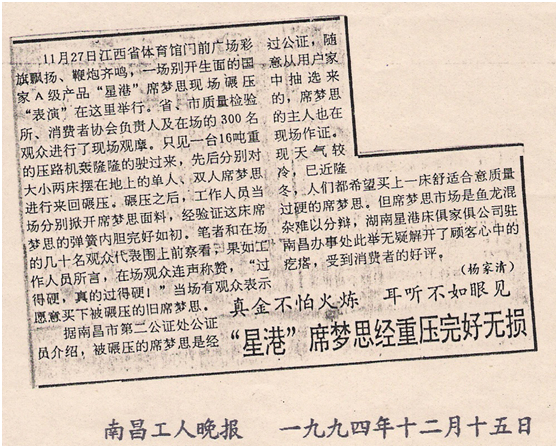 11月27日江西省体育馆门前广场彩
旗飘扬、鞭炮齐鸣，一场别开生面的国
家A级产品“星港”席梦思现场碾压
“表演”在这里举行。省、市质量检验
所、消费者协会负责人及在场的300名
观众进行了现场观摩。只见一台16吨重
的压路机轰隆隆的驶过来，先后分别对
大小两床摆在地上的单人、双人席梦思
进行来回碾压。碾压之后，工作人员当
场分别掀开席梦思面料，经验证这床席
梦思的弹簧内胆完好如初。笔者和在场
的几十名观众代表围上前察看，果如工
作人员所言，在场观众连声称赞，“过
得硬，真的过得硬！”当场有观众表示
愿意买下被碾压的旧席梦思。
据南昌市第二公证处公证
员介绍，被碾压的席梦思是经
过公证，随
意从用户家
中抽选来
的，席梦思
的主人也在
现场作证。
现天气较
冷，已近隆
冬，人们都希望买上一床舒适合意质量
过硬的席梦思。但席梦思市场是鱼龙混
杂难以分辩，湖南星港床俱家俱公司驻
南昌办事处此举无疑解开了顾客心中的
疙瘩，受到消费者的好评。
（杨家清）
真金不怕火炼 耳听不如眼见
“星港”席梦思经重压完好无损
南昌工人晚报 一九九四年十二月十五日